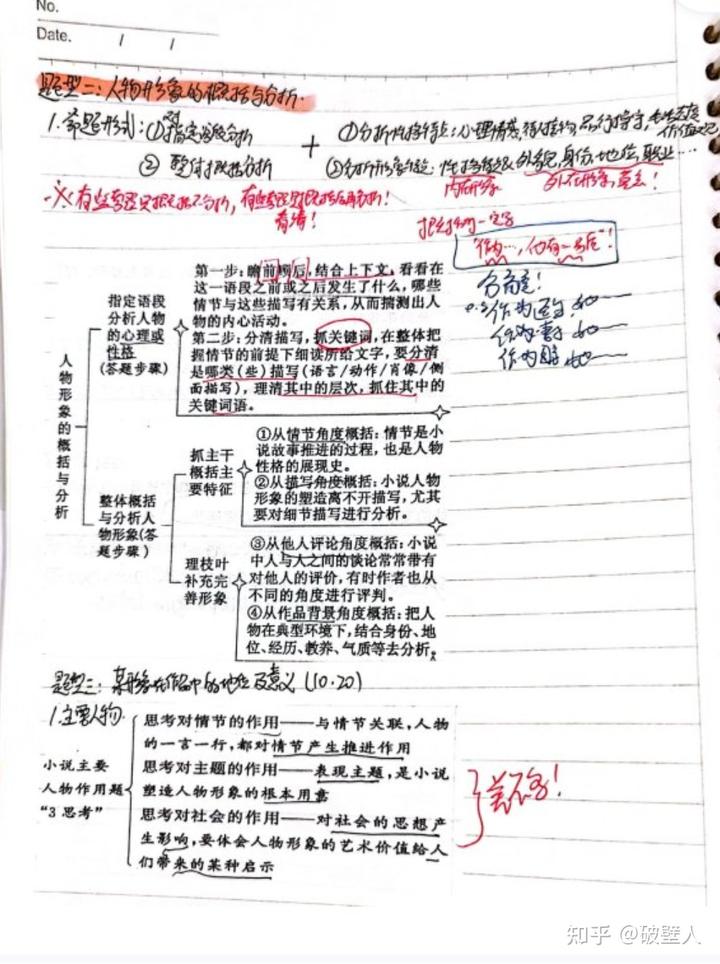 No.
Date. / /
题型二:人物形象的概括与分析.
1.命题形式:①指定语段分析 + ①分析性格特征:心理情感
②整体概括分析 ②分析形象特征:性格特征及外貌,身份,地位,职业…
内在形象 外在形象
※有些题只概括不分析,
"作为…,他有
分高
作为
作为
作为
人物形象的概括与分析
指定语段
分析人物
的心理或
性格
(答题步骤)
第一步:瞻前顾后,结合上下文,看看在
这一语段之前或之后发生了什么,哪些
情节与这些描写有关系,从而揣测出人
物的内心活动。
第二步:分清描写,抓关键词,在整体把
握情节的前提下细读所给文字,要分清
是哪类(些)描写(语言/动作/肖像/侧
面描写),理清其中的层次,抓住其中的
关键词语。
整体概括
与分析人
物形象(答
题步骤)
抓主干
概括主
要特征
①从情节角度概括:情节是小
说故事推进的过程,也是人物
性格的展现史。
②从描写角度概括:小说人物
形象的塑造离不开描写,尤其
要对细节描写进行分析。
理枝叶
补充完
善形象
③从他人评论角度概括:小说
中人与人之间的谈论常常带有
对他人的评价,有时作者也从
不同的角度进行评判。
④从作品背景角度概括:把人
物在典型环境下,结合身份、地
位、经历、教养、气质等去分析。
题型三:某形象在作品中的地位及意义(10·20)
1.主要人物
小说主要
人物作用题
“3思考”
思考对情节的作用——与情节关联,人物
的一言一行,都对情节产生推进作用
思考对主题的作用——表现主题,是小说
塑造人物形象的根本用意
思考对社会的作用——对社会的思想产
生影响,要体会人物形象的艺术价值给人
们带来的某种启示
知乎 @破壁人